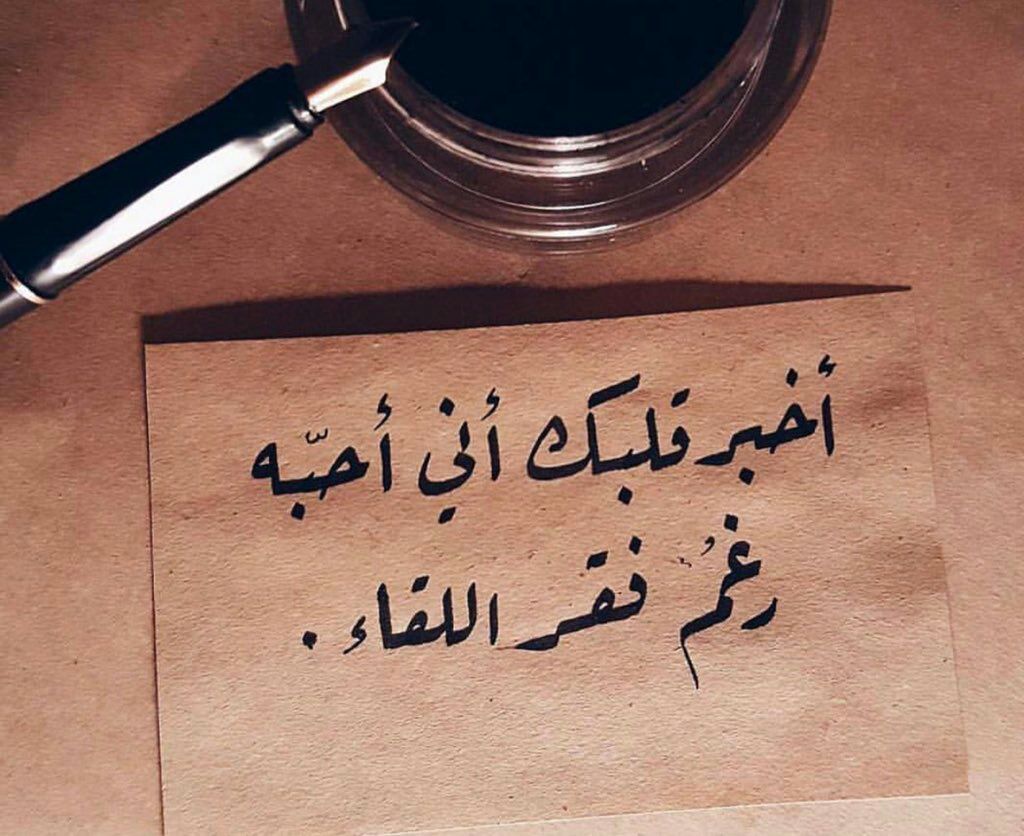 أخبر قلبك أني أحبّه
رغمُ فقر اللقاء .